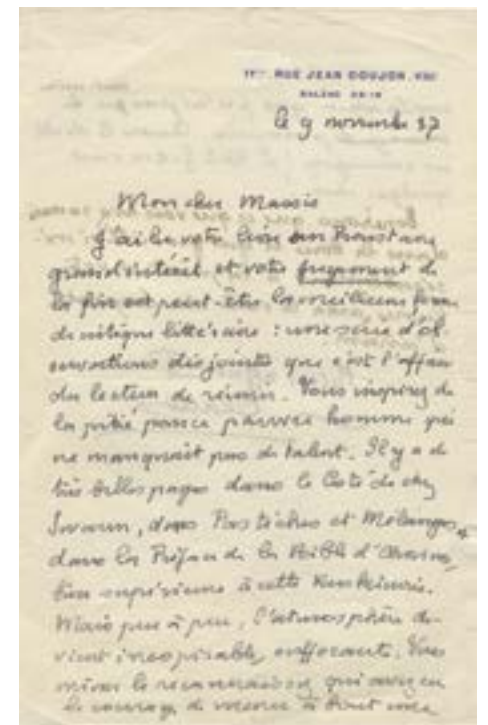 11bis RUE JEAN GOUJON, VIIIe
BALZAC
le 9 novembre 37
Mon cher Massis
J'ai lu votre livre sur Proust avec
grand intérêt et votre fragment de
la fin est peut-être la meilleure forme
de critique littéraire : une série d'ob-
servations disjointes que c'est l'affaire
du lecteur de réunir. Vous inspirez de
la pitié pour ce pauvre homme qui
ne manquait pas de talent. Il y a de
très belles pages dans le Côté de chez
Swann, dans Pastiches et Mélanges,
dans la Préface de la Bible d'Amiens,
bien supérieure à cette
Mais peu à peu, l'atmosphère de-
vient irrespirable, suffocante. Vous
la reconnaissance, qui avez eu
le courage de mener à bout une